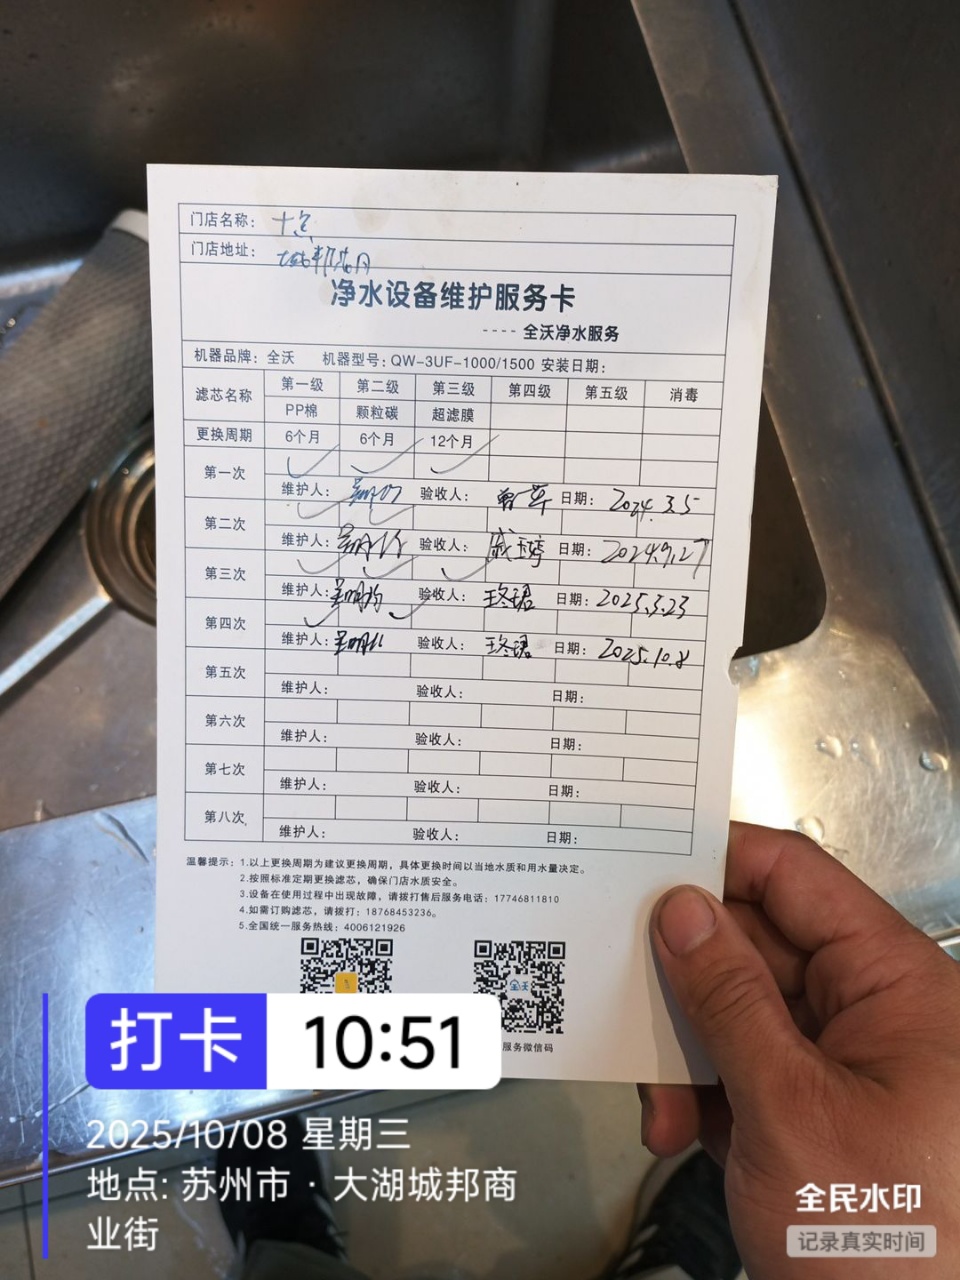 门店名称：
门店地址：
净水设备维护服务卡
---- 全沃净水服务
机器品牌：全沃 机器型号：QW-3UF-1000/1500 安装日期：
滤芯名称 第一级 第二级 第三级 第四级 第五级 消毒
PP棉 颗粒碳 超滤膜
更换周期 6个月 6个月 12个月
第一次
维护人： 验收人： 日期：2024.3.5
第二次
维护人： 验收人： 日期：2024.9.27
第三次
维护人： 验收人： 日期：2025.3.23
第四次
维护人： 验收人： 日期：2025.10.8
第五次
维护人： 验收人： 日期：
第六次
维护人： 验收人： 日期：
第七次
维护人： 验收人： 日期：
第八次
维护人： 验收人： 日期：
温馨提示：1.以上更换周期为建议更换周期，具体更换时间以当地水质和用水量决定。
2.按照标准定期更换滤芯，确保门店水质安全。
3.设备在使用过程中出现故障，请拨打售后服务电话：17746811810
4.如需订购滤芯，请拨打：18768453236。
5.全国统一服务热线：4006121926
全沃
服务微信码
打卡 10:51
2025/10/08 星期三
地点: 苏州市 · 大湖城邦商
业街
全民水印
记录真实时间